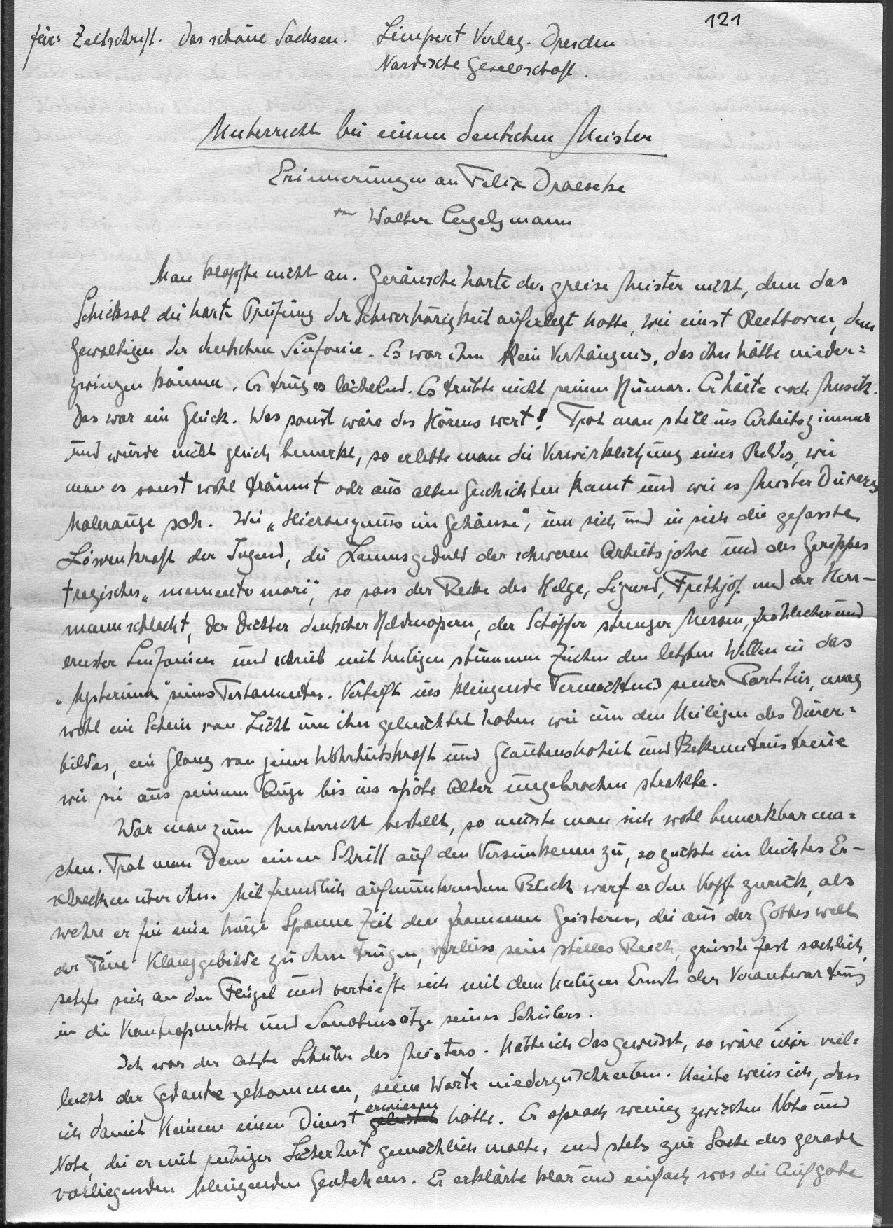 121
für Zeitschrift. Das schöne Sachsen. Limpert Verlag. Dresden
Nordische Gesellschaft.
Unterricht bei einem deutschen Meister
Erinnerungen an Felix Draeseke
von Walter Engelsmann
Man klopfte nicht an. Geräusche hörte der greise Meister nicht, dem das
Schicksal die harte Prüfung der Schwerhörigkeit auferlegt hatte, wie einst Beethoven, dem
Gewaltigen der deutschen Sinfonie. Es war ihm kein Verhängnis, das ihn hätte nieder-
zwingen können. Er trug es lächelnd. Es trübte nicht seinen Humor. Er hörte noch Musik.
Das war ein Glück. Was sonst wäre des Hörens wert! Trat man still ins Arbeitszimmer
und wurde nicht gleich bemerkt, so erlebte man die Verwirklichung eines Bildes, wie
man es sonst wohl träumt oder aus alten Geschichten kannt und wie es Meister Dürers
Malerauge sah. Wie „Hieronymus im Gehäuse", um sich und in sich die gefasste
Löwenkraft der Jugend, die Lammsgeduld der schweren Arbeitsjahre und des Gerippes
tragisches „memento mori", so sass der Recke des Helge, Sigurd, Frithjof und der Herr-
mannschlacht, der Dichter deutscher Heldenopern, der Schöpfer strenger Messen, fröhlicher und
ernster Sinfonien und schrieb mit heiligen stummen Zeichen den letzten Willen in das
„Mysterium" seines Testamentes. Vertieft ins klingende Vermächtnis seiner Partitur, mag
wohl ein Schein von Licht um ihn geleuchtet haben wie um den Heiligen des Dürer-
bildes, ein Glanz von jener Wahrheitskraft und Glaubenshoheit und Bekenntnistreue
wie sie aus seinem Auge bis ins späte Alter ungebrochen strahlte.
War man zum Unterricht bestellt, so musste man sich wohl bemerkbar ma-
chen. Trat man dann einen Schritt auf den Versunkenen zu, so zuckte ein leichtes Er-
schrecken über ihn. Mit freundlich aufmunterndem Blick warf er den Kopf zurück, als
wehre er für eine kurze Spanne Zeit den frommen Geistern, die aus der Gotteswelt
der Töne Klanggebilde zu ihm trugen, verliess sein stilles Reich, grüsste fast sachlich,
setzte sich an den Flügel und vertiefte sich mit dem heiligen Ernst der Verantwortung
in die Kontrapunkte und Sonatensätze seines Schülers.
Ich war der letzte Schüler des Meisters. Hätte ich das gewusst, so wäre mir viel-
leicht der Gedanke gekommen, seine Worte niederzuschreiben. Heute weiss ich, dass
ich damit keinem einen Dienst erwiesen hätte. Er sprach wenig zwischen Note und
Note, die er mit ruhiger Sicherheit gemächlich malte, und stets zur Sache des gerade
vorliegenden klingenden Gedankens. Er erklärte klar und einfach was die Aufgabe